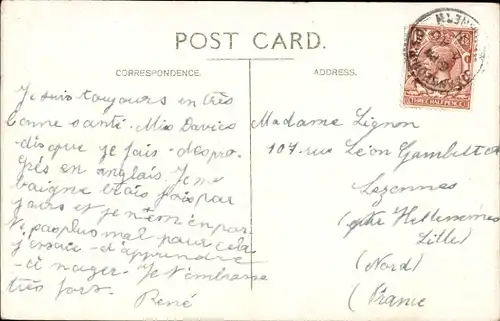 POST CARD.
CORRESPONDENCE.
ADDRESS.
THREE HALF PENCE
Je suis toujours en très
bonne santé. Miss Davies
dis que je fais des pro
grés en anglais. Je me
baigne trois fois par
jours et je n'em en por
te pas plus mal pour cela
j'essaie d'apprendre
à nager. Je t'embrasse
très fort.
René
Madame Lignon
107 rue Léon Gambetta
Lezennes
(près Hellemmes
Lille)
(Nord)
(France)